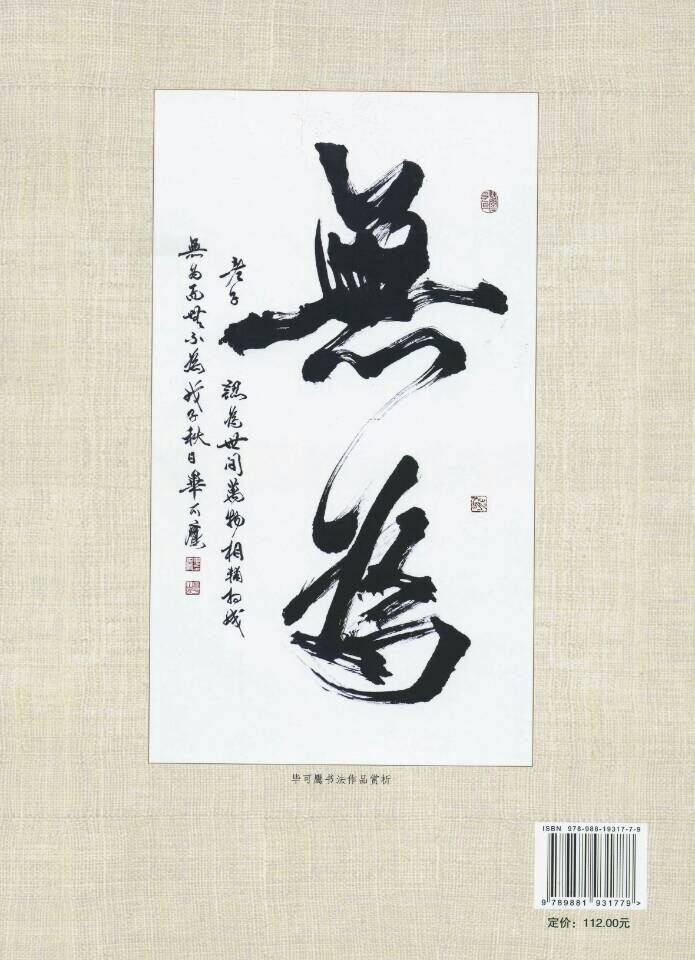 無為
老子認為世间萬物相輔相成
無为而無不為戊子秋日畢可鷹
毕可鹰书法作品赏析
ISBN 978-988-19317-7-9
9 789881 931779 >
定价：112.00元